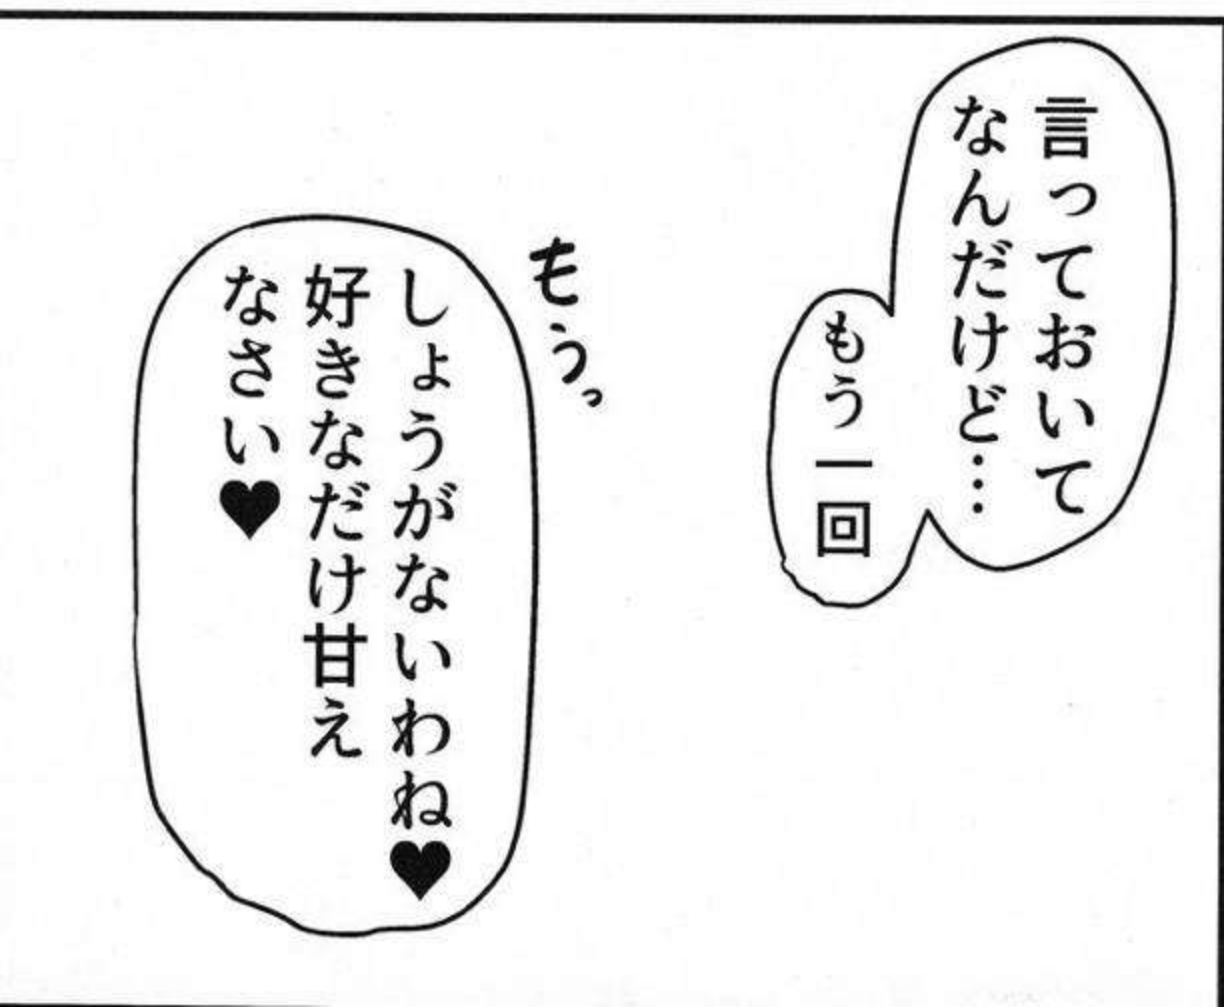 言っておいて
なんだけど…
もう一回
もうっ
しょうがないわね♥
好きなだけ甘え
なさい♥